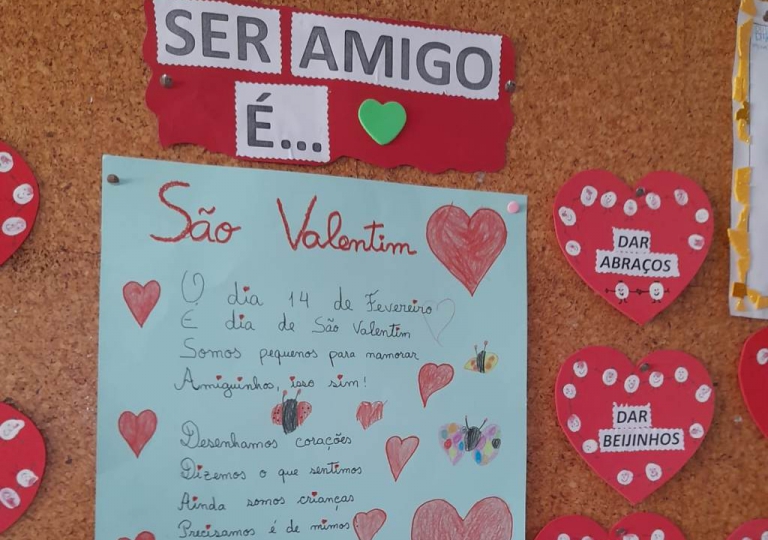 SER AMIGO
É...
São Valentim
O dia 14 de Fevereiro
É dia de São Valentim
Somos pequenos para namorar
Amiguinhos, isso sim!
Desenhamos corações
Dizemos o que sentimos
Ainda somos crianças
Precisamos é de mimos
DAR
ABRAÇOS
DAR
BEIJINHOS